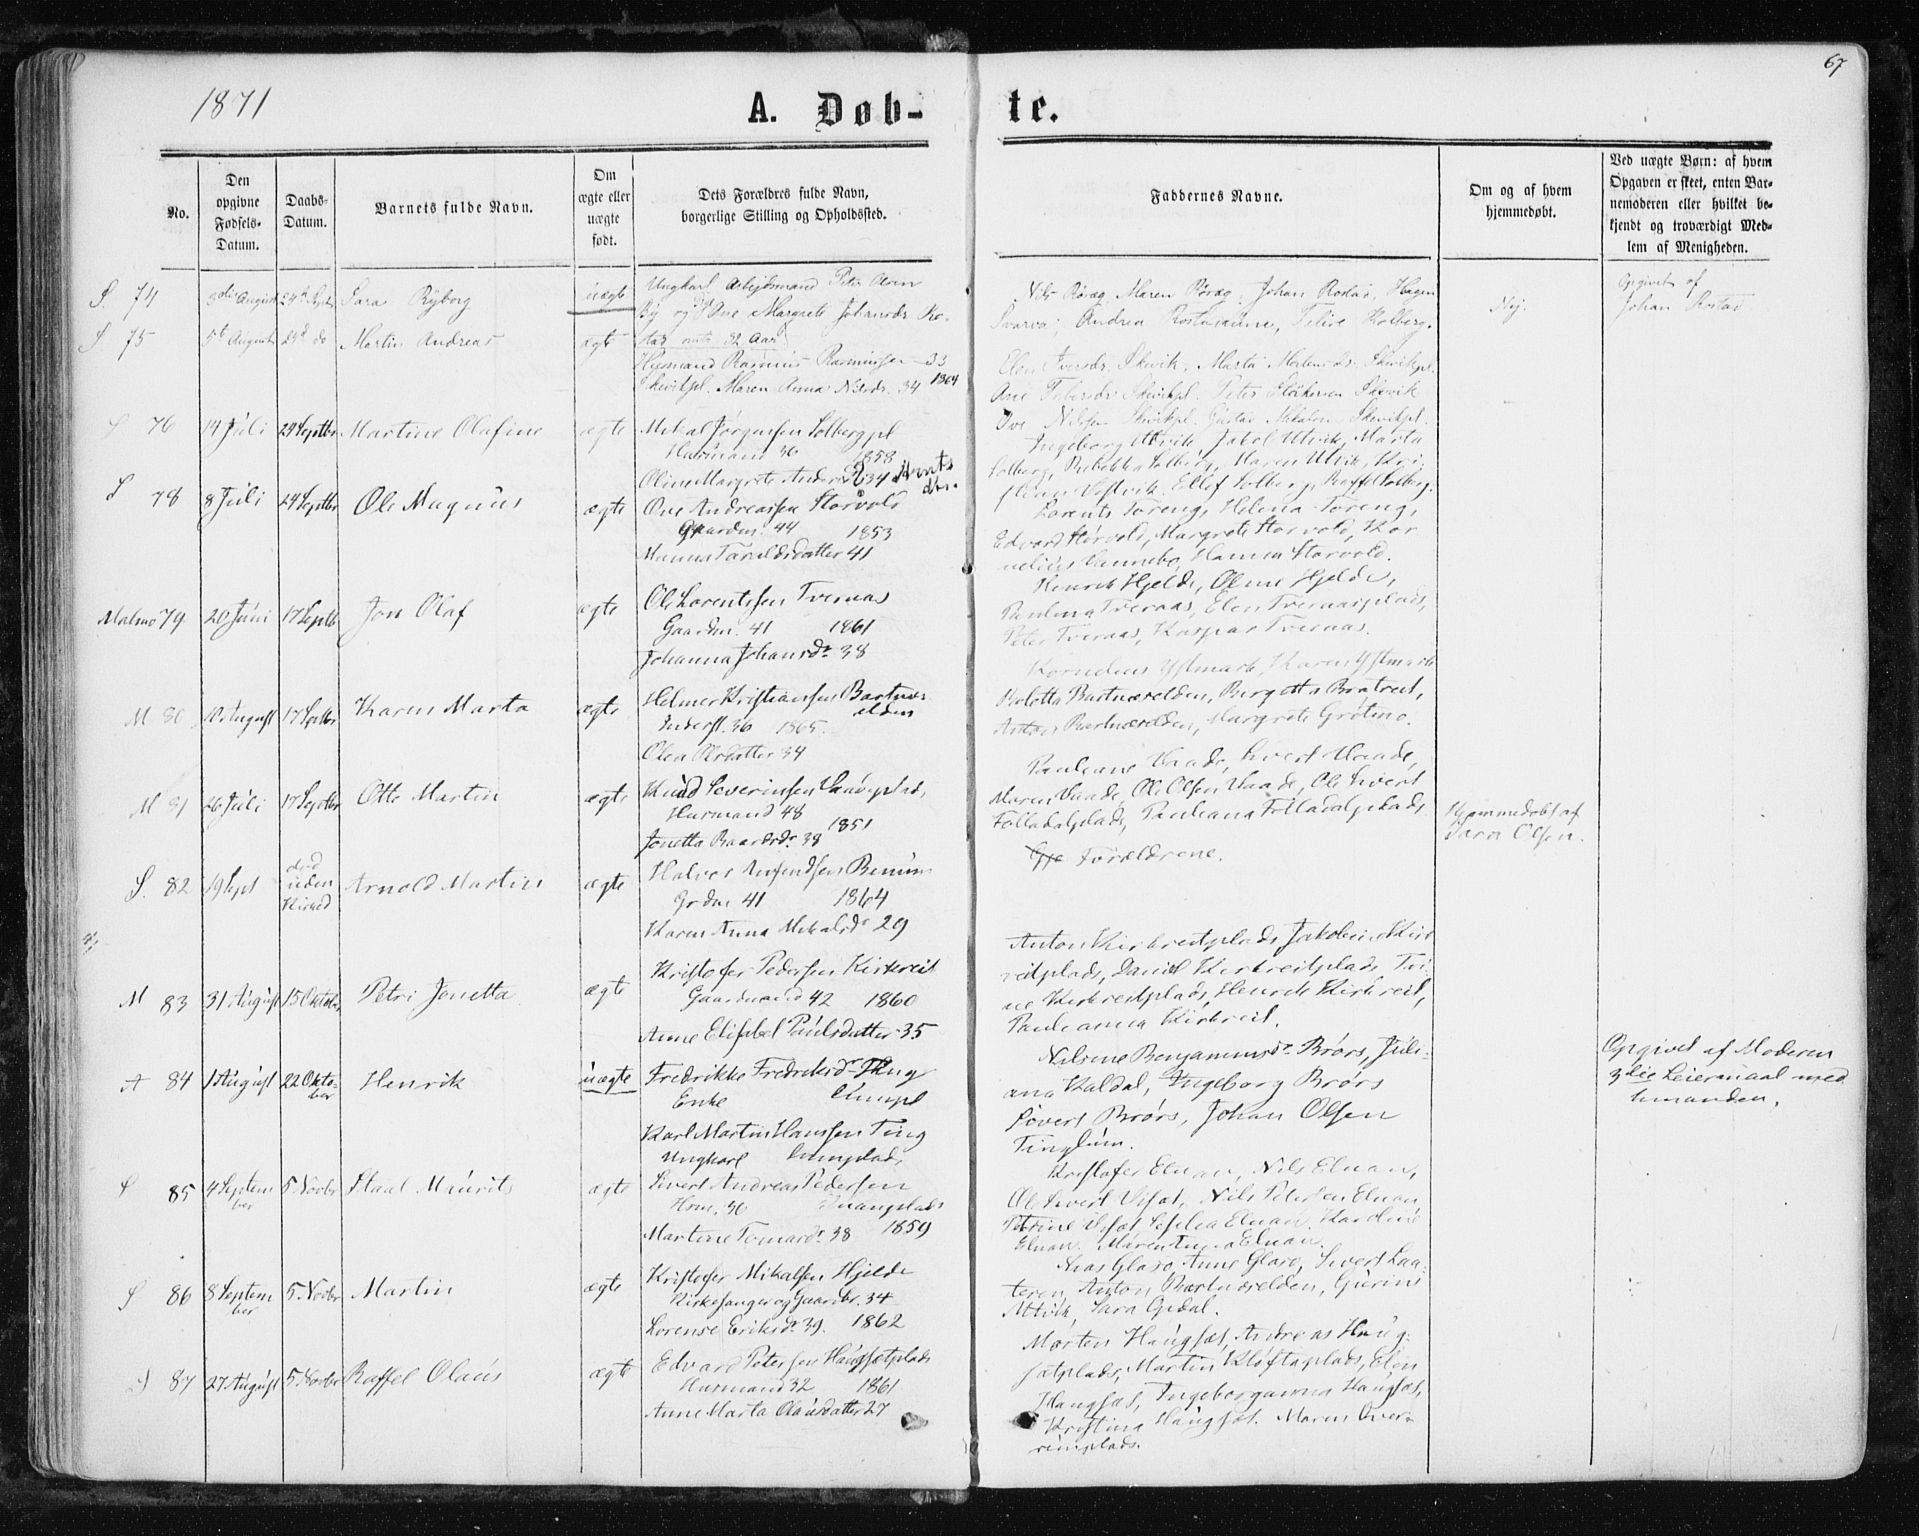 1871
A. Døb-
te.
67
No.
Den opgivne Fødsels-Datum.
Daabs-Datum.
Barnets fulde Navn.
Om ægte eller uægte født.
Dets Forældres fulde Navn, borgerlige Stilling og Opholdssted.
Faddernes Navne.
Om og af hvem hjemmedøbt.
Ved uægte Børn: af hvem Opgaven er skeet, enten Barnemoderen eller hvilket bekjendt og troværdigt Medlem af Menigheden.
S. 74
August
Sara Ryborg
uægte
Ungkarl Arbejdsmand Peter
By og Ane Margrete Johansdr
Nils Røvæg, Maren Røvæg, Johan Rostad, Hagen
Svarva, Andrea
Nej.
Opgivet af
Johan Rostad
S 75
5te August
24d do
Martin Andreas
ægte
Husmand Rasmus Rasmussen 33
Skevikpl. Maren Anna Nilsdr. 34 1864
Elen Iversdr. Skevik, Marta
Ane Skevikpl. Peter Skevik
Ove Nilsen Skevikpl. Gustav Skevikpl.
S 76
14 Juli
24 Septbr
Martine Olafine
ægte
Mikal Jørgensen Solbergpl
Husmand 36 1858
Oline Margrete 34
Ingeborg Utvik, Jakob Utvik, Marta
Solberg, Rebekka Solberg, Maren Utvik, Kri
stine Vestvik, Ellef Solberg, Raffel Solberg.
S 78
8 Juli
24 Septbr
Ole Magnus
ægte
Ove Andreassen Storvold
Gaardm. 44 1853
41
Lorents Foreng, Helena Foreng,
Edvard Storvold, Margrete Storvold, Kor
nelius Vannebo, Hanna Storvold.
Malmo 79
20 Juni
17 Septb
Jon Olaf
ægte
Ole Lorentssen Tvernas
Gaardm. 41 1861
Johanna Johansdr 38
Henrik Hjelde, Oline Hjelde,
Paulina Tvernas, Elen Tvernasplads,
Peter Tvernas, Kaspar Tvernas.
M 80
10 August
17 Septbr
Karen Marta
ægte
Helmer Kristiansen Bartnes
elden
Inderst. 36 1865
Olea Olsdatter 34
Kornelius Ystmark, Karen Ystmark
Beletta Bartneselden, Bergitta Bratreit,
Anton Bartneselden, Margrete Grøtmo.
M 81
26 Juli
17 Septbr
Otto Martin
ægte
Knud Severinsen Vaadeplads
Husmand 48
1851
Jonetta Baardsdr 38
Pauleane Vaade, Sivert Vaade,
Maren Vaade, Ole Olsen Vaade, Ole Sivert
Folladalplads, Pauleana Folladalplads
Hjemmedøbt af
Sara Olsen.
S. 82
19 Sept
død
uden
Kirked
Arnold Martin
ægte
Halvor Amundsen Benum
Grdm 41 1864
Karen Anna Mikalsdr 29
Forældrene.
M 83
31 August
15 Oktober
Petri Jonetta
ægte
Kristofer Pedersen Kirkreit
Gaardmand 42 1860
Anne Elisabet Paulsdatter 35
Anton Kirkreitplads, Jakobine Kirk
reitplads, Daniel Kirkreitplads, Tri-
ne Kirkreitplads, Henrik Kirkreit,
Pauleanna Kirkreit.
A 84
1 August
22 Okto-
ber
Henrik
uægte
Fredrikke Fredriksdr Ting
Enke lumpl
Karl Martin Hanssen Ting
Ungkarl lumplads
Nilsine Benjaminsdr Brørs, Juli-
ana Kaldal, Ingeborg Brørs
Sivert Brørs, Johan Olsen
Tinglum.
Opgivet af Moderen
3die Leiermaal med
temanden.
S 85
4 Septem
ber
5 Novbr
Staal Maurits
ægte
Sivert Andreas Pedersen
Hsm. 36 Elnanplads
Martine Tomasdr 38 1859
Kristofer Elnan, Nils Elnan,
Ole Sivert Viset, Nils Petersen Elnan
Petrine Viset Sefelia Elnan. Karoline
Elnan. Maren Anna Elnan.
S 86
8 Septem
ber
5 Novbr
Martin
ægte
Kristofer Mikalsen Hjelde
Kirkesanger og Gaardbr. 34
Lorense Eriksdr 39. 1862
Aias Glaso, Anne Glaso, Sivert Laa-
teren, Anton Bartneselden, Gurine
Utvik, Sara Opdal.
S 87
27 August
5 Novbr
Raffel Olaus
ægte
Edvard Petersen Haugsetplads
Husmand 32 1861
Anne Marta Olausdatter 27
Morten Haugset, Andreas Haug-
setplads, Martin Kløftaplads, Elen
Haugset, Ingeborganna Haugset,
Kristina Haugset. Maren Over-
reinplads.